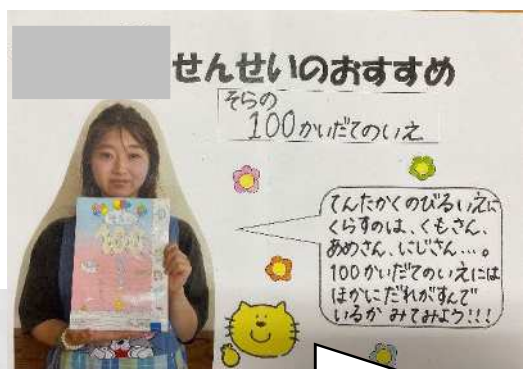 せんせいのおすすめ
そらの
100かいだてのいえ
てんたかくのびるいえに
くらすのは、くもさん、
あめさん、にじさん…。
100かいだてのいえには
ほかにだれがすんで
いるか みてみよう!!!